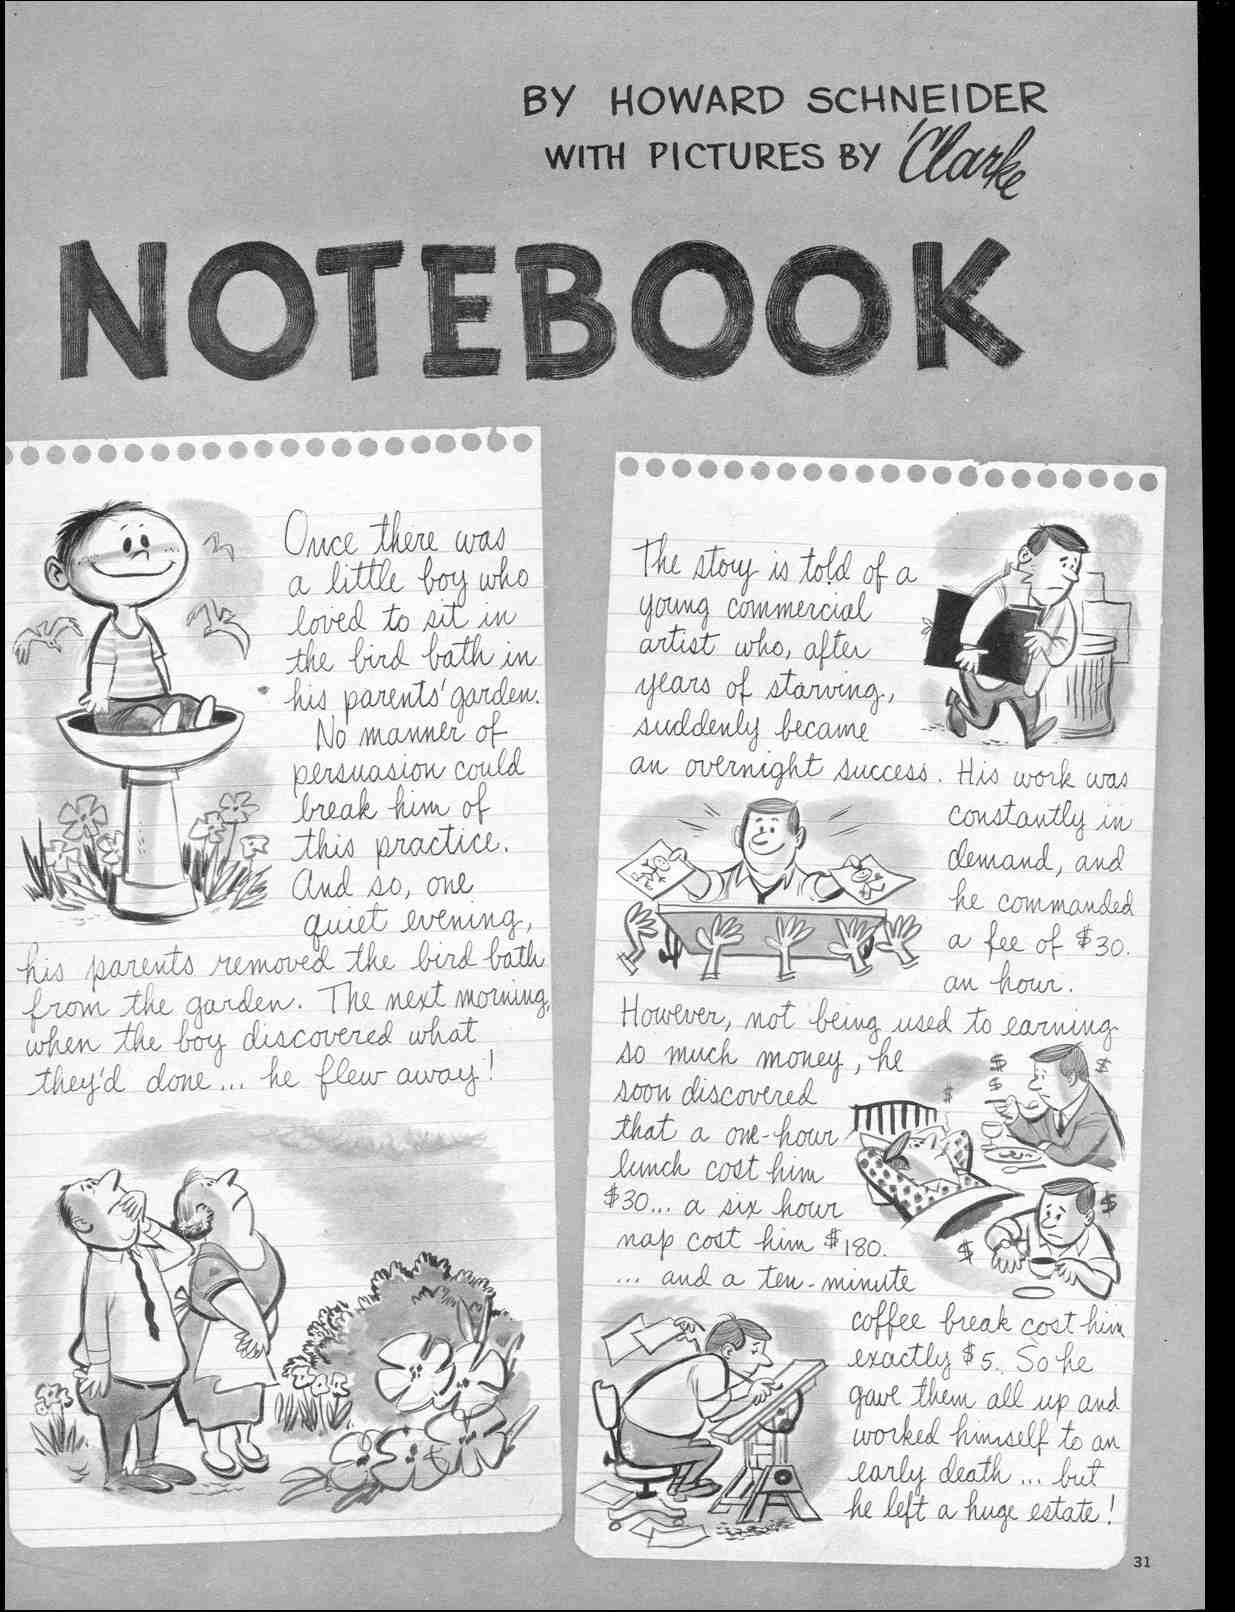 BY HOWARD SCHNEIDER
WITH PICTURES BY Clarke
NOTEBOOK
Once there was
a little boy who
loved to sit in
the bird bath in
his parents' garden.
No manner of
persuasion could
break him of
this practice.
And so, one
quiet evening,
his parents removed the bird bath
from the garden. The next morning,
when the boy discovered what
they'd done... he flew away!
The story is told of a
young commercial
artist who, after
years of starving,
suddenly became
an overnight success. His work was
constantly in
demand, and
he commanded
a fee of $30.
an hour.
However, not being used to earning
so much money, he
soon discovered
that a one-hour
lunch cost him
$30... a six hour
nap cost him $180.
... and a ten-minute
coffee break cost him
exactly $5. So he
gave them all up and
worked himself to an
early death... but
he left a huge estate!
$ $
$
$
$
$
31